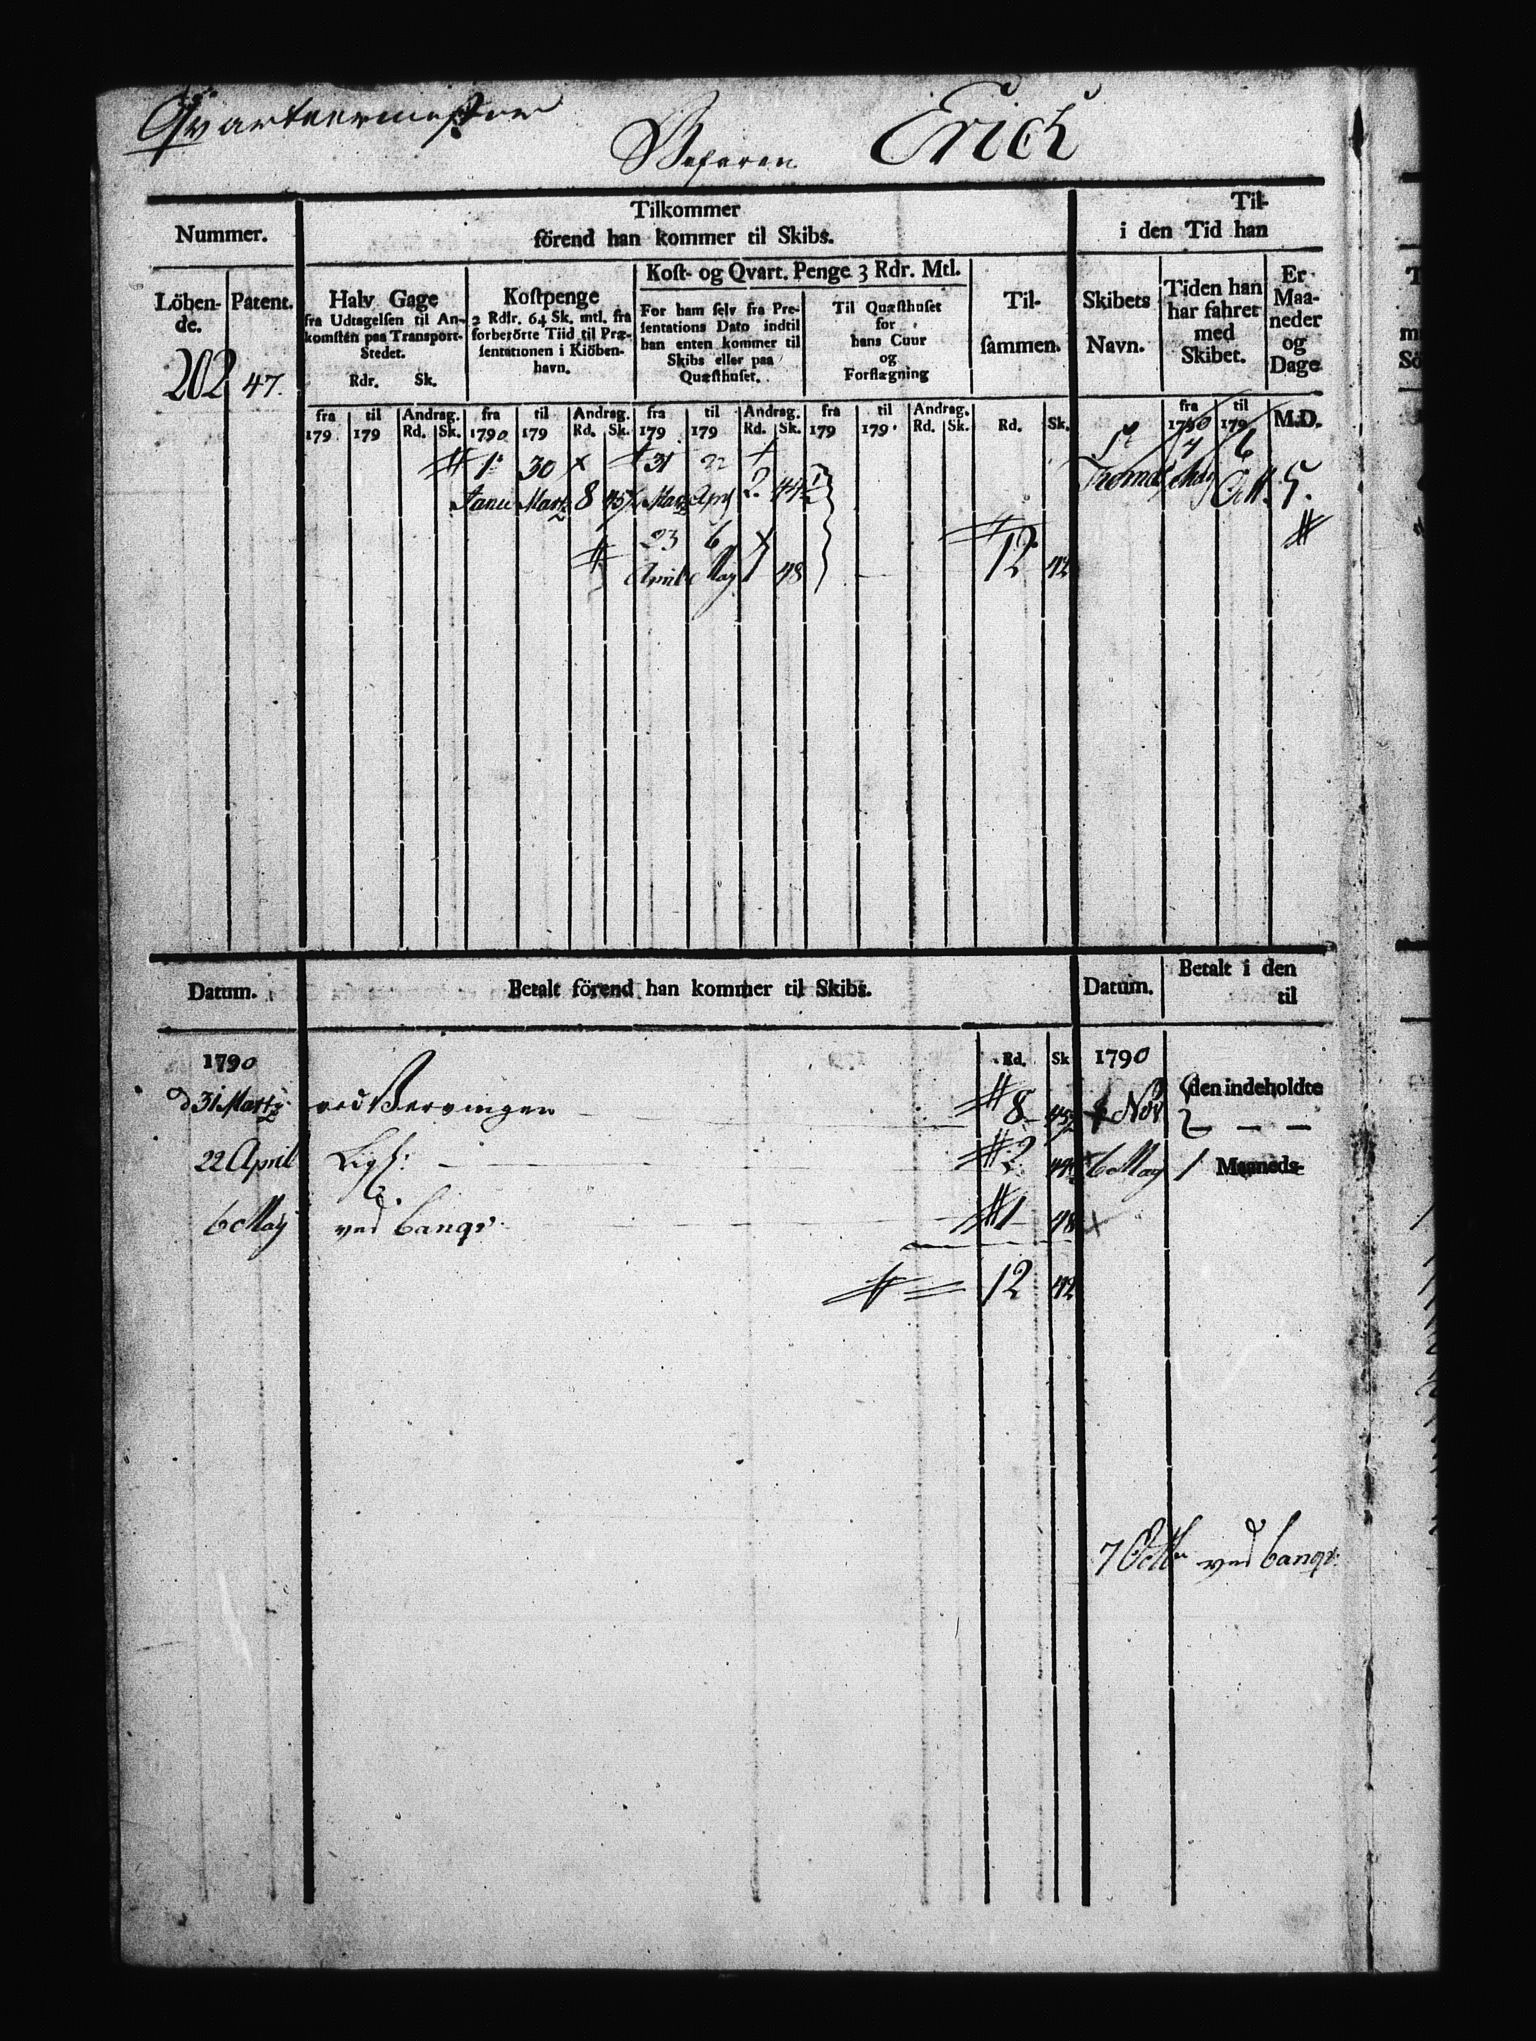 Qvarteermester
Befaren Erich
Nummer.
Tilkommer
förend han kommer til Skibs.
Til-
i den Tid han
Löben-
de.
Patent.
Halv Gage
fra Udtagelsen til An-
komsten paa Transport-
Stedet.
Rdr. Sk.
Kostpenge
2 Rdlr. 64 Sk. mtl. fra
forberörte Tiid til Præ-
sentationen i Kiöben-
havn.
Kost- og Qvart. Penge 3 Rdr. Mtl.
For ham selv fra Pre-
sentations Dato indtil
han enten kommer til
Skibs eller paa
Quæsthuset.
Til Quæsthuset
for
hans Cuur
og
Forflægning
Til-
sammen.
Skibets
Navn.
Tiden han
har fahret
med
Skibet.
Er
Maa-
neder
og
Dage
202 47.
fra til Andrag. fra til Andrag. fra til Andrag. fra til Andrag. fra til
179 179 Rd. Sk. 1790 179 Rd. Sk. 179 179 Rd. Sk. 179 179 Rd. Sk. Rd. Sk. 1790 179 M.D.
1 30 31 22 7 6
Janu Martz 8 Martz Apr 2 44 May Octb 5.
23 6
April May 1 48 12 42
Datum. Betalt förend han kommer til Skibs. Datum. Betalt i den
til
1790 Rd. Sk 1790
d 31 Martz ved 8 Nov den indeholdte
22 April Lig 2 6 May 1 Maaneds-
6 May ved banqv 1 48
12 42
7 Octbr ved banqv